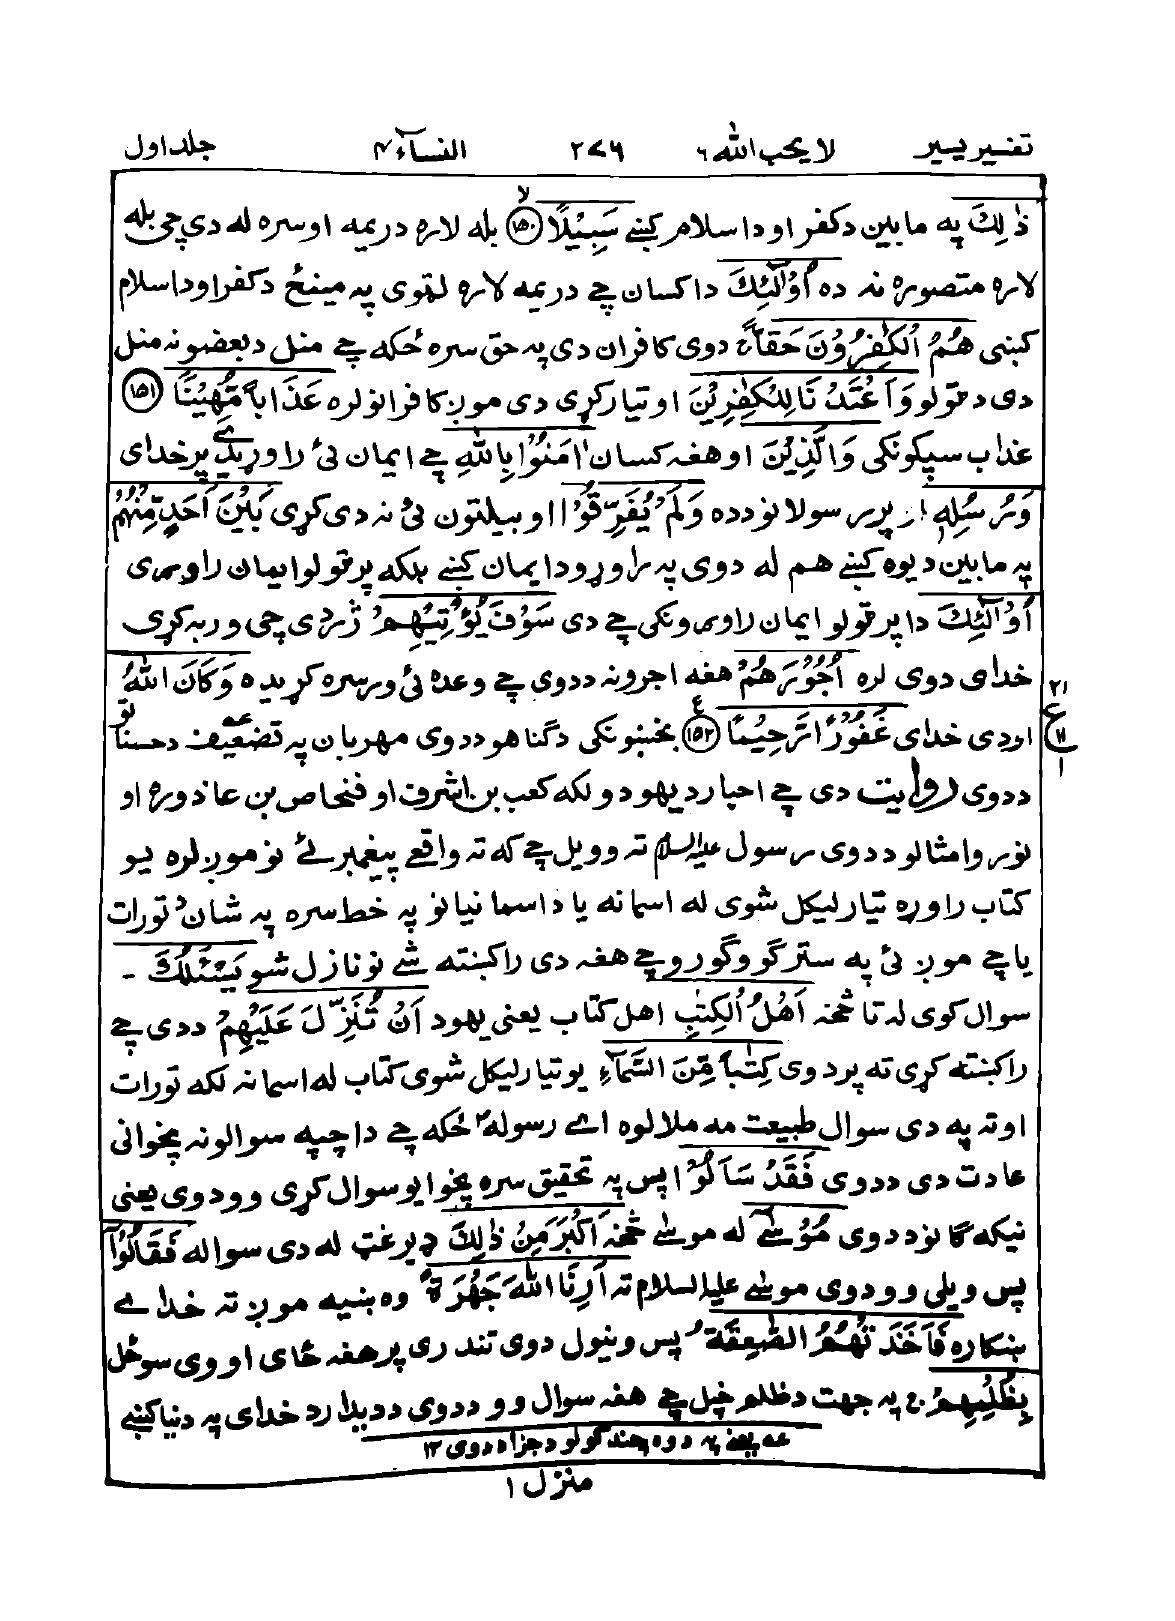 تفسیر یسیر لا یحب الله ۶ ۲۷۶ النسآء ۴ جلد اول
ذٰلِكَ په مابین دکفر او داسلام کښے سَبِیْلًا ﴿۱۵۰﴾ لا بله لاره دریمه اوسره له دی چی بله
لاره متصوره نه ده اُولٰٓئِكَ داکسان چے دریمه لاره لټوی په مینځ دکفر او داسلام
کښی هُمُ الْکٰفِرُوْنَ حَقًّا ج دوی کافران دی په حق سره ځکه چے منل دبعضو نه منل
دی دټولو وَاَعْتَدْنَا لِلْکٰفِرِیْنَ او تیارکړی دی مونږ کافرانو لره عَذَابًا مُّهِیْنًا ﴿۱۵۱﴾
عذاب سپکونکی وَالَّذِیْنَ او هغه کسان اٰمَنُوْا بِاللّٰهِ چے ایمان ئی راوړیدے پرخدای
وَرُسُلِهٖ او پر رسولانو دده وَلَمْ یُفَرِّقُوْا او بیلتون ئی نه دی کړی بَیْنَ اَحَدٍ مِّنْهُمْ
په مابین دیوه کښے هم له دوی په راوړو دایمان کښے بلکه پر ټولو ایمان راوړی
اُولٰٓئِكَ دا پر ټولو ایمان راوړونکی چے دی سَوْفَ یُؤْتِیْهِمْ ژر دی چی وربه کړی
خدای دوی لره اُجُوْرَهُمْ هغه اجرونه ددوی چے وعده ئی ورسره کړیده وَکَانَ اللّٰهُ
اودی خدای غَفُوْرًا رَّحِیْمًا ﴿۱۵۲﴾ ع بخښونکی دګناهو ددوی مهربان په تضعیف عه دحسناتو
ددوی روایت دی چے احبارد یهودو لکه کعب بن اشرف او فنحاص بن عاذوره او
نور وامثالو ددوی رسول علیه السلام ته وویل چے که ته واقعے پیغمبر ئے نو مونږ لره یو
کتاب راوړه تیار لیکل شوی له اسمانه یا داسمانیانو په خط سره په شان د تورات
یا چے مونږ ئی په سترګو وګورو چے هغه دی راکښته شے نو نازل شو یَسْـَٔلُكَ -
سوال کوی له تا څخه اَهْلُ الْکِتٰبِ اهل کتاب یعنی یهود اَنْ تُنَزِّلَ عَلَیْهِمْ ددی چے
راکښته کړی ته پردوی کِتٰبًا مِّنَ السَّمَآءِ یو تیار لیکل شوی کتاب له اسمانه لکه تورات
او ته په دی سوال طبیعت مه ملالوه اے رسوله ځکه چے داچپه سوالونه پخوانی
عادت دی ددوی فَقَدْ سَاَلُوْا پس په تحقیق سره پخوا یو سوال کړی وو دوی یعنی
نیکه ګانو ددوی مُوْسٰٓی له موسٰے څخه اَکْبَرَ مِنْ ذٰلِكَ ډیر غټ له دی سواله فَقَالُوْٓا
پس ویلی وو دوی موسٰے علیه السلام ته اَرِنَا اللّٰهَ جَهْرَةً وه ښیه مونږ ته خداے
ښکاره فَاَخَذَتْهُمُ الصّٰعِقَةُ پس ونیول دوی تندری پر هغه ځای او وی سوځل
بِظُلْمِهِمْ ج په جهت دظلم خپل چے هغه سوال وو ددوی ددیدارد خدای په دنیا کښے
عه یعنے په دوه چند ګولو دجزا ددوی ۱۲
منزل ۱
۲۱
ع
۱